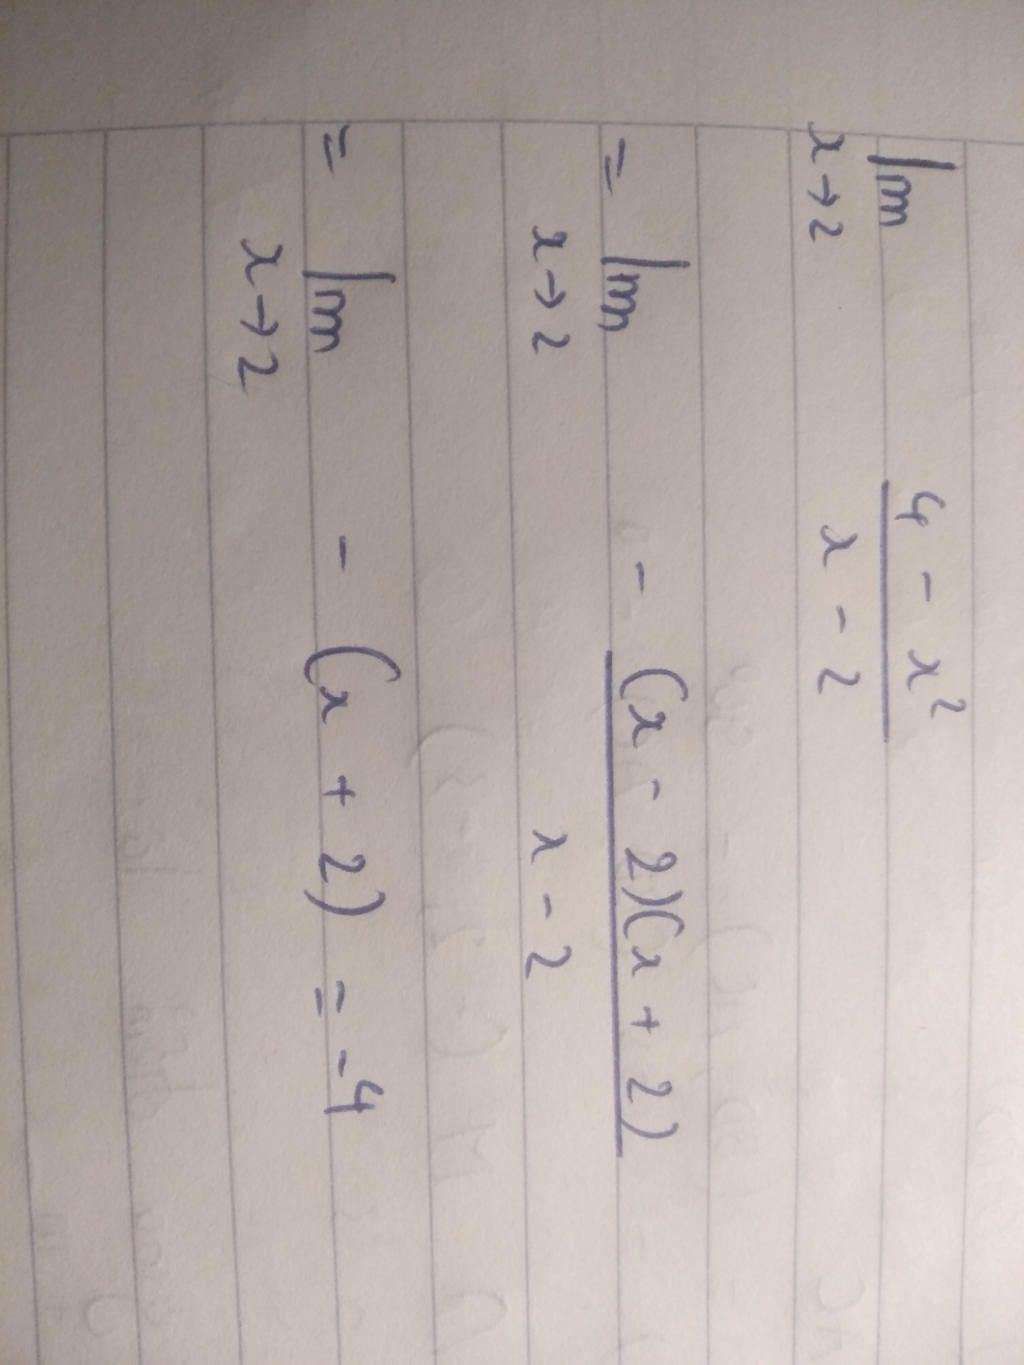 lim 4 - x²
x→2 x - 2
= lim - (x - 2)(x + 2)
x→2 x - 2
= lim - (x + 2) = -4
x→2